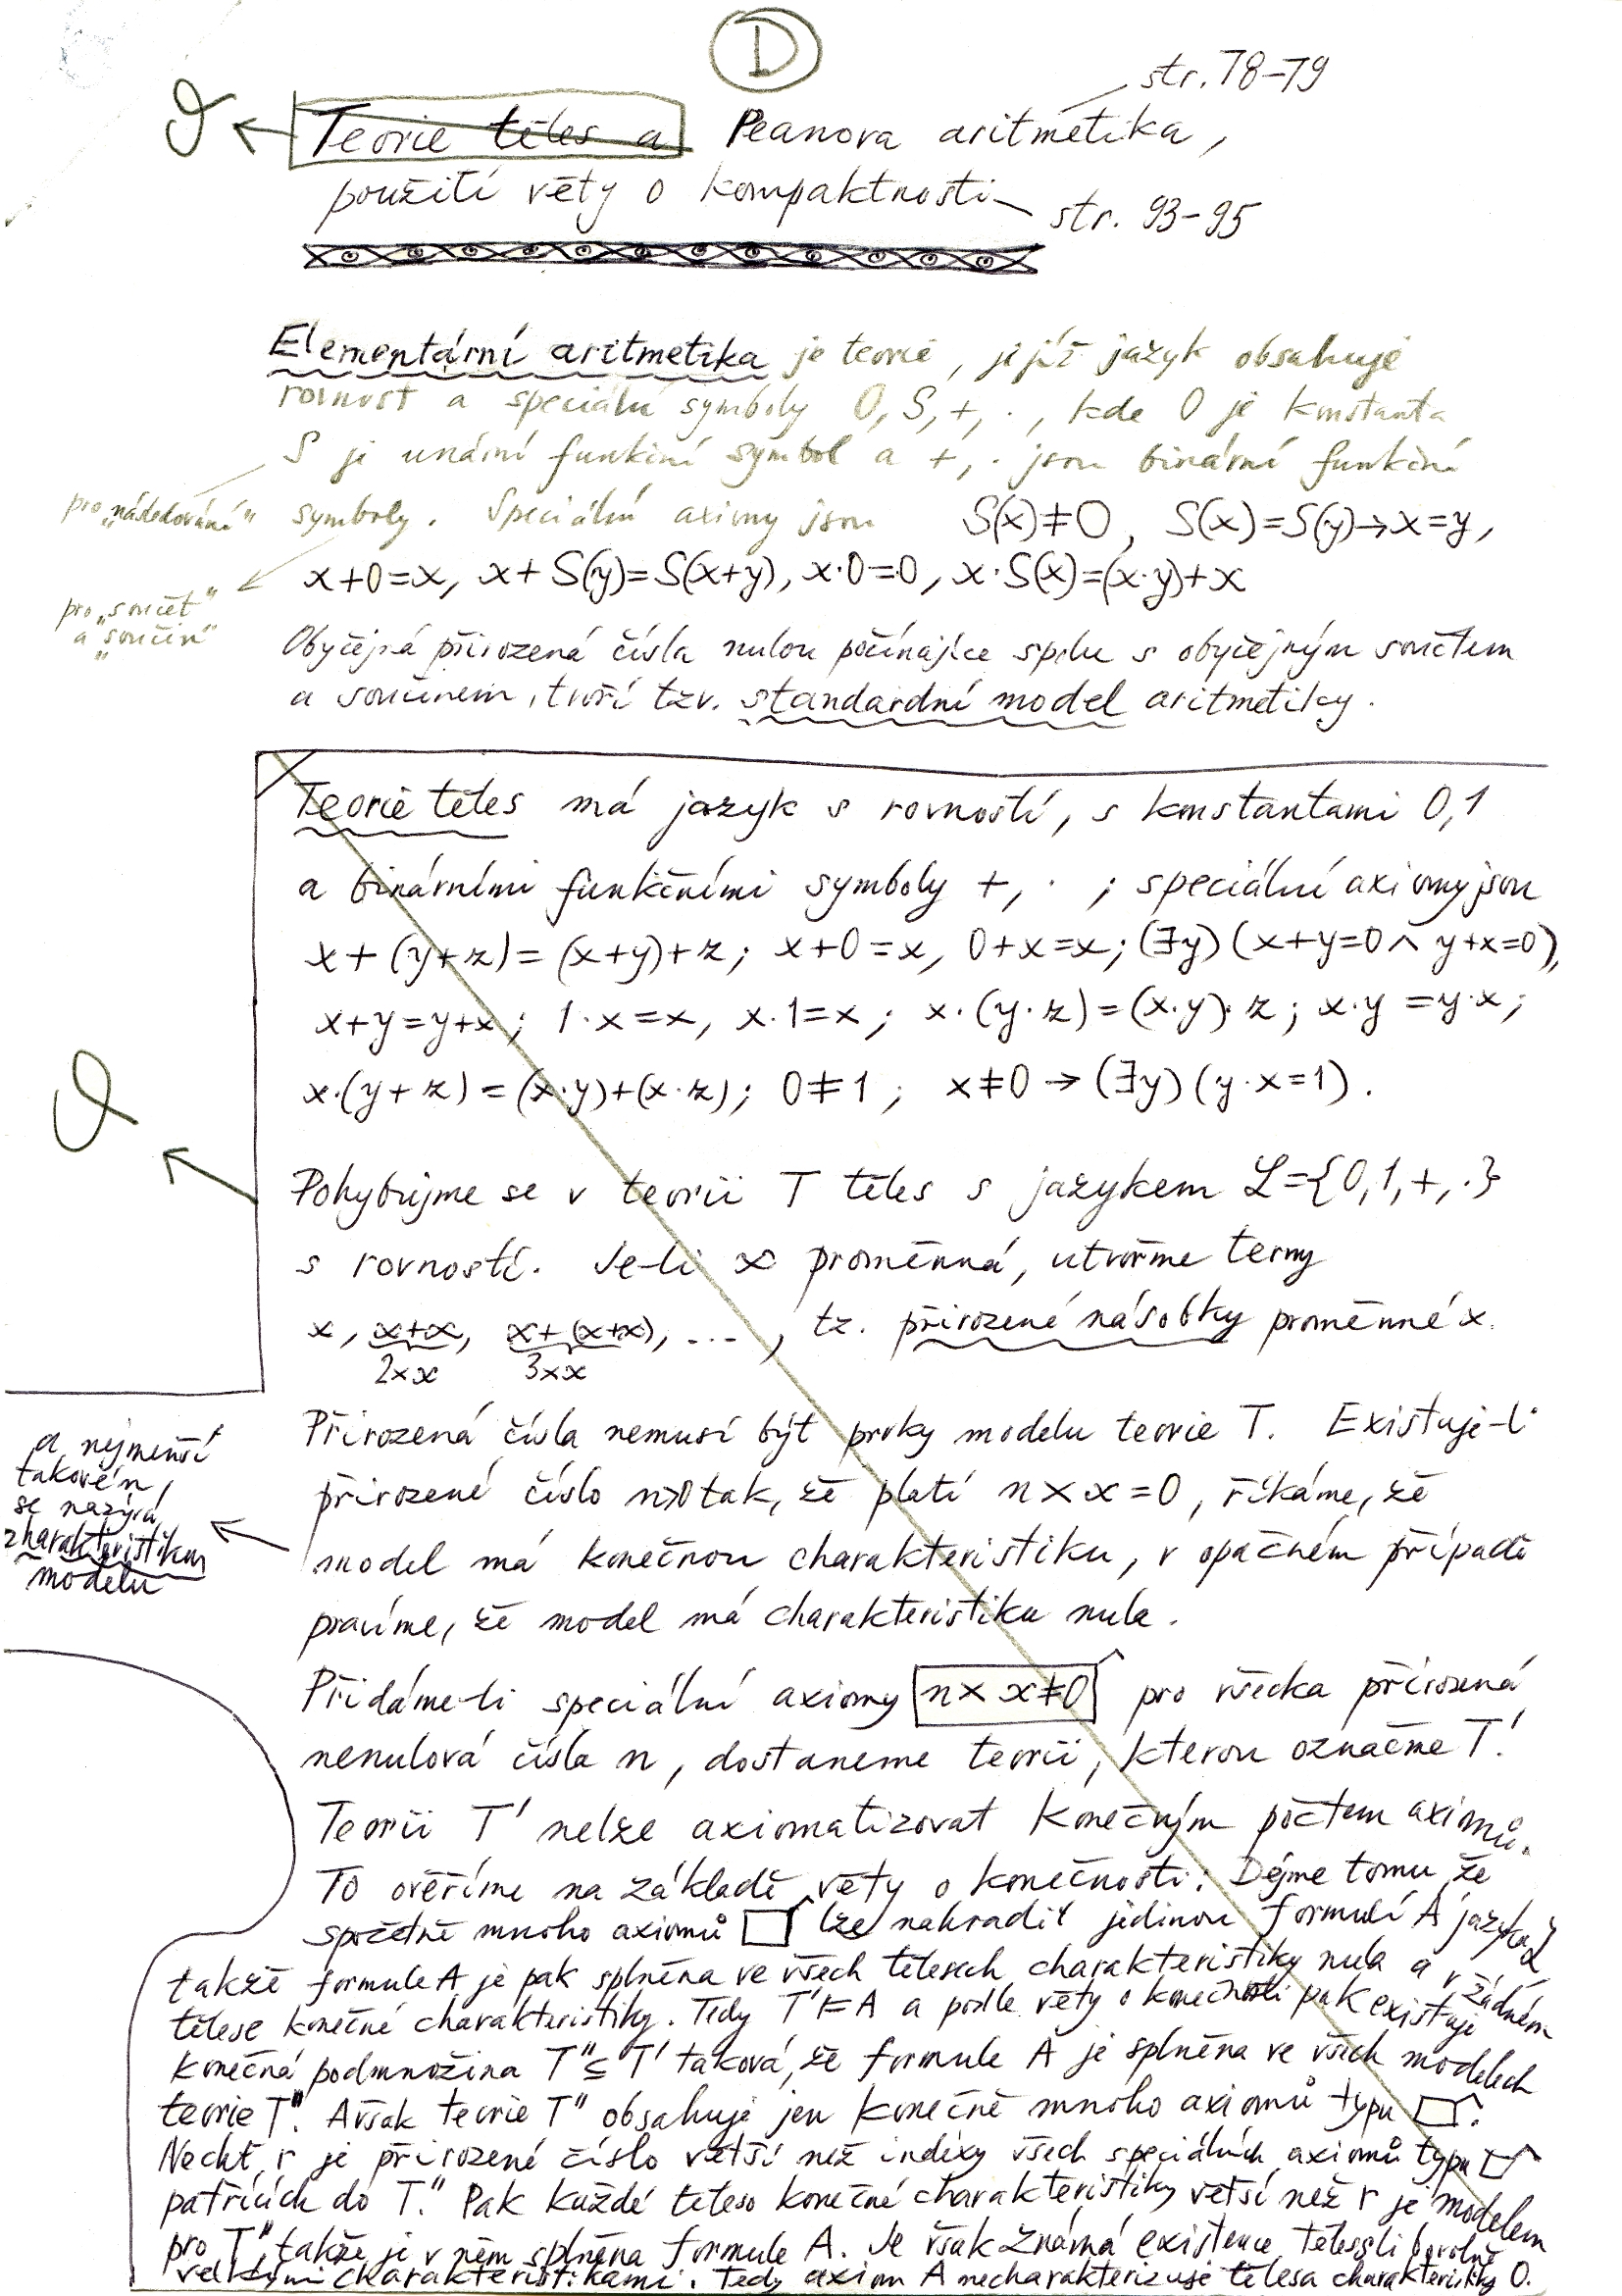 D
str. 78–79
Teorie těles a Peanova aritmetika,
použití věty o kompaktnosti
str. 93–95
Elementární aritmetika je teorie, jejíž jazyk obsahuje
rovnost a speciální symboly 0, S, +, ·, kde 0 je konstanta
S je unární funkční symbol a +, · jsou binární funkční
pro „následování“
symboly. Speciální axiomy jsou S(x)≠0, S(x)=S(y)→x=y,
x+0=x, x+S(y)=S(x+y), x·0=0, x·S(x)=(x·y)+x
pro „součet“
a „součin“
Obyčejná přirozená čísla nulou počínajíce spolu s obyčejným součtem
a součinem, tvoří tzv. standardní model aritmetiky.
Teorie těles má jazyk s rovností, s konstantami 0,1
a binárními funkčními symboly +, · ; speciální axiomy jsou
x+(y+z)=(x+y)+z; x+0=x, 0+x=x; (∃y)(x+y=0 ∧ y+x=0),
x+y=y+x; 1·x=x, x·1=x; x·(y·z)=(x·y)·z; x·y=y·x;
x·(y+z)=(x·y)+(x·z); 0≠1; x≠0→(∃y)(y·x=1).
Pohybujme se v teorii T těles s jazykem L={0,1,+,·}
s rovností. Je-li x proměnná, utvořme termy
x, x+x, x+(x+x), ..., tz. přirozené násobky proměnné x.
2×x 3×x
Přirozená čísla nemusí být prvky modelu teorie T. Existuje-li
přirozené číslo n>0 tak, že platí n×x=0, říkáme, že
model má konečnou charakteristiku, v opačném případě
pravíme, že model má charakteristiku nula.
a nejmenší
takové n,
se nazývá
charakteristikou
modelu
Přidáme-li speciální axiomy n×x≠0 pro všecka přirozená
nenulová čísla n, dostaneme teorii, kterou označme T'.
Teorii T' nelze axiomatizovat konečným počtem axiomů.
To ověříme na základě věty o konečnosti: Dejme tomu že
spočetně mnoho axiomů □ lze nahradit jedinou formulí A jazyka L
takže formule A je pak splněna ve všech tělesech charakteristiky nula a v žádném
tělese konečné charakteristiky. Tedy T'⊨A a podle věty o konečnosti pak existuje
konečná podmnožina T''⊆T' taková, že formule A je splněna ve všech modelech
teorie T''. Avšak teorie T'' obsahuje jen konečně mnoho axiomů typu □.
Nechť r je přirozené číslo větší než indexy všech speciálních axiomů typu □
patřících do T''. Pak každé těleso konečné charakteristiky větší než r je modelem
pro T'' takže je v něm splněna formule A. Je však známá existence těles s libovolně
velkými charakteristikami. Tedy axiom A necharakterizuje tělesa charakteristiky 0.